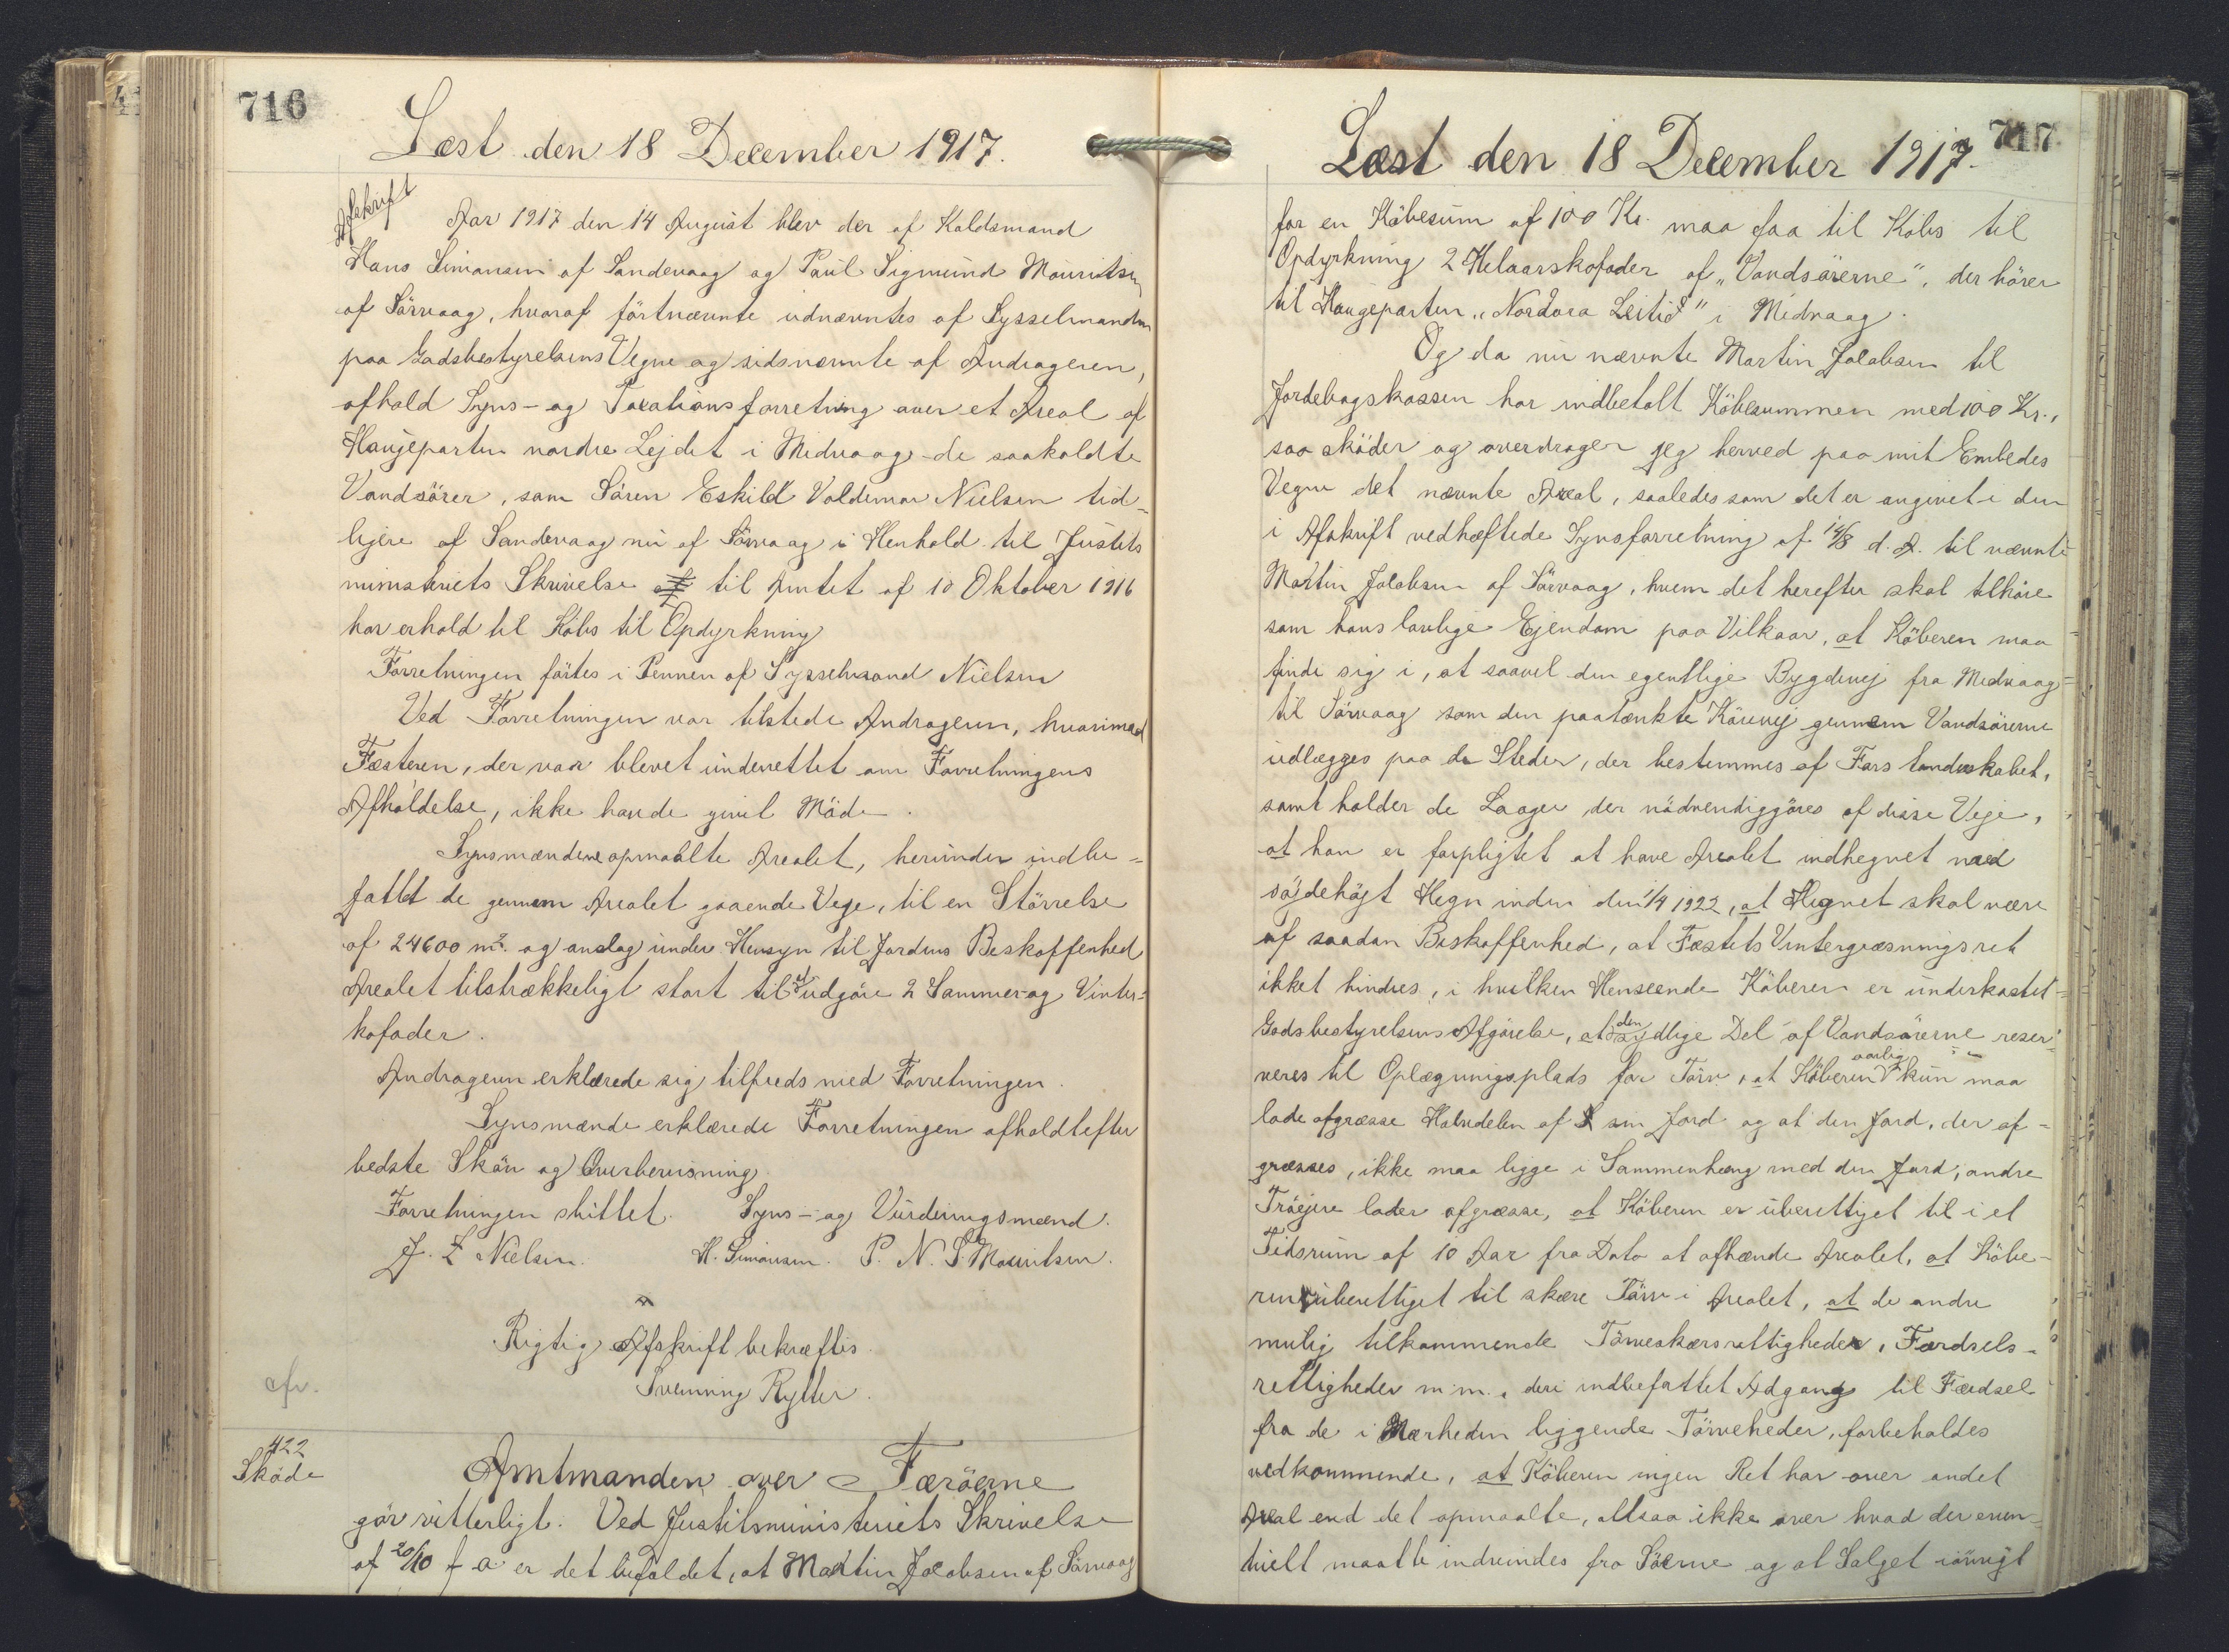 716
Læst den 18 December 1917.
Afskrift
Aar 1917 den 14 August blev der af Koldsmand
Hans Simonsen af Sandevaag og Paul Sigmund Mouritsen
af Sörvaag, hvoraf förtnævnte udnævntes af Sysselmanden
paa Godsbestyrelsens Vegne og sidsnævnte af Andrageren,
afhold Syns- og Taxationsforretning over et Areal af
Haugeparten nordre Lejdet i Midvaag - de saakaldte
Vandsörer, som Sören Eskild Valdemar Nielsen tid-
ligere af Sandevaag nu af Sörvaag i Henhold til Justits
ministeriets Skrivelse til Amtet af 10 Oktober 1916
har erhold til Köbs til Opdyrkning
Forretningen förtes i Pennen af Sysselmand Nielsen
Ved Forretningen var tilstede Andrageren, hvorimod
Fæsteren, der var blevet underrettet om Forretningens
Afholdelse, ikke havde givet Möde.
Synsmændene opmaalte Arealet, herunder indbe-
fattet de gennem Arealet gaaende Veje, til en Störrelse
af 24600 m². og anslog under Hensyn til Jordens Beskaffenhed
Arealet tilstrækkeligt stort til at udgöre 2 Sommer- og Vinter-
kofoder.
Andrageren erklærede sig tilfreds med Forretningen.
Synsmænde erklærede Forretningen afholdt efter
bedste Skön og Overbevisning
Forretningen sluttet. Syns- og Vurderingsmænd.
J. L Nielsen. H. Simonsen. P. N. S. Mouritsen.
Rigtig Afskrift bekræftes.
Svenning Rytter.
cfr.
422
Sköde
Amtmanden over Færöerne
gör vitterligt. Ved Justitsministeriets Skrivelse
af 20/10 f a er det bifaldet, at Martin Jacobsen af Sörvaag
717
Læst den 18 December 1917.
for en Köbesum af 100 Kr. maa faa til Köbs til
Opdyrkning 2 Helaarskofoder af "Vandsörerne", der hörer
til Haugeparten "Nordara Leitið" i Midvaag.
Og da nu nævnte Martin Jacobsen til
Jordebogskassen har indbetalt Köbesummen med 100 Kr.,
saa sköder og overdrager jeg herved paa mit Embedes
Vegne det nævnte Areal, saaledes som det er angivet i den
i Afskrift vedhæftede Synsforretning af 14/8 d. A. til nævnte
Martin Jacobsen af Sörvaag, hvem det herefter skal tilhöre
som hans lovlige Ejendom paa Vilkaar, at Köberen maa
finde sig i, at saavel den egentlige Bygdevej fra Midvaag
til Sörvaag som den paatænkte Körevej gennem Vandsörerne
udlægges paa de Steder, der bestemmes af Forstanderskabet,
samt holder de Laager der nödvendiggöres af disse Veje,
at han er forpligtet at have Arealet indhegnet med
söjdehöjt Hegn inden den 1/4 1922, at Hegnet skal være
af saadan Beskaffenhed, at Fæstets Vintergræsningsret
ikket hindres, i hvilken Henseende Köberen er underkastet
Godsbestyrelsens Afgörelse, at den sydlige Del af Vandsörerne reser-
veres til Oplægningsplads for Törv, at Köberen aarlig kun maa
lade afgræsse Halvdelen af sin Jord og at den Jord, der af-
græsses, ikke maa ligge i Sammenhæng med den Jord, andre
Tröejere lader afgræsse, at Köberen er uberettiget til i et
Tidsrum af 10 Aar fra Dato at afhænde Arealet, at Köbe-
ren uberettiget til skære Törv i Arealet, at de andre
mulig tilkommende Törveskærsrettigheder, Færdsels-
rettigheder m.m., deri indbefattet Adgang til Færdsel
fra de i Nærheden liggende Törveheder, forbeholdes
vedkommende, at Köberen ingen Ret har over andet
Areal end det opmaalte, altsaa ikke over hvad der even-
tuelt maatte indvindes fra Söerne og at Salget iövrigt